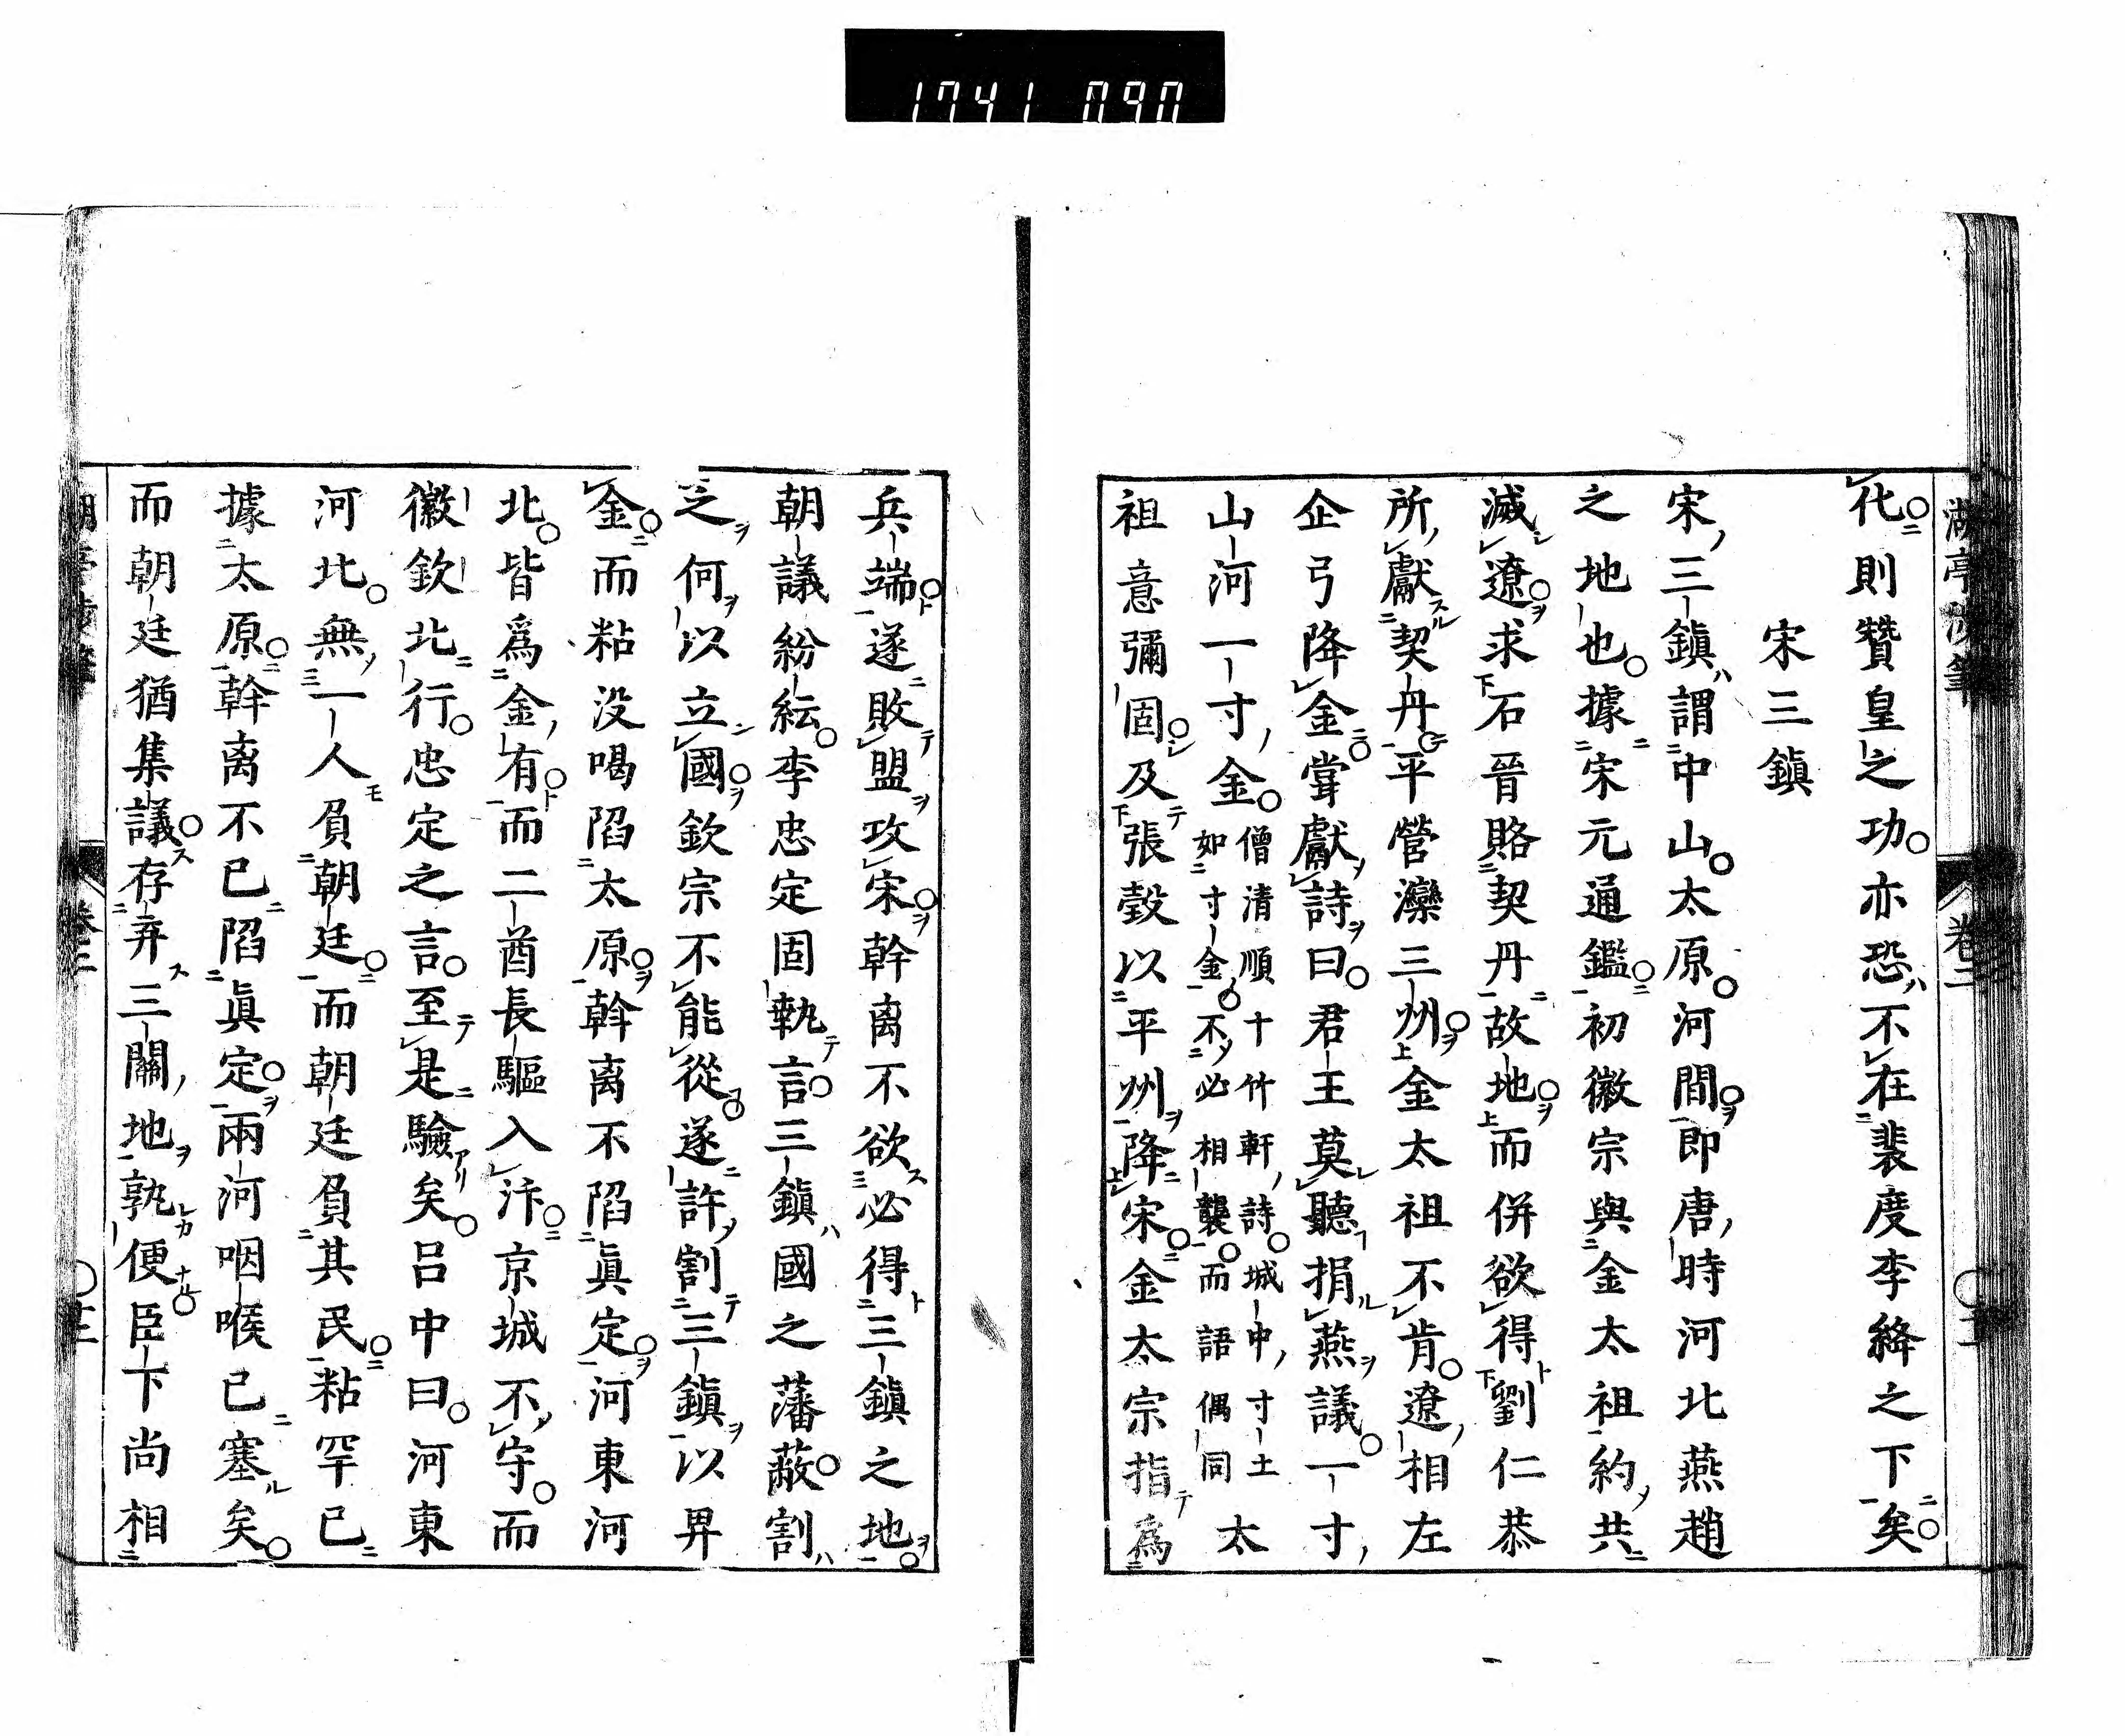 1741 090
代則贊皇之功亦恐不在裴度李絳之下矣
宋三鎭
宋三鎭謂中山太原河間即唐時河北燕趙
之地也據宋元通鑑初徽宗與金太祖約共
滅遼求石晉賂契丹故地而併欲得劉仁恭
所獻契丹平營灤三州金太祖不肯遼相左
企弓降金甞獻詩曰君王莫聽捐燕議一寸
山河一寸金
僧清順十竹軒詩城中寸土
如寸金不必相襲而語偶同
太
祖意彌固及張瑴以平州降宋金太宗指爲
兵端遂敗盟攻宋斡离不欲必得三鎭之地
朝議紛紜李忠定固執言三鎭國之藩蔽割
之何以立國欽宗不能從遂許割三鎭以畀
金而粘没喝陷太原斡离不陷眞定河東河
北皆爲金有而二酋長驅入汴京城不守而
徽欽北行忠定之言至是驗矣呂中曰河東
河北無一人負朝廷而朝廷負其民粘罕已
據太原斡离不已陷眞定兩河咽喉已塞矣
而朝廷猶集議存弃三關地孰便臣下尚相